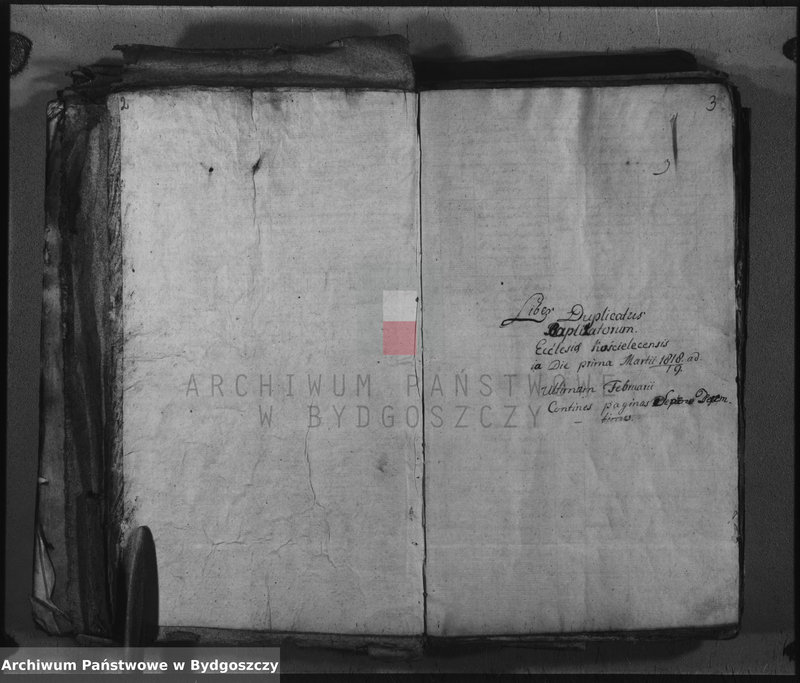 2
3
Liber Duplicatus
Baptisatorum.
Ecclesiæ Kościelecensis
ia Die prima Martii 1818 ad
19.
ultimam Februarii
Continet paginas
ARCHIWUM PAŃSTWOWE
W BYDGOSZCZY
Archiwum Państwowe w Bydgoszczy